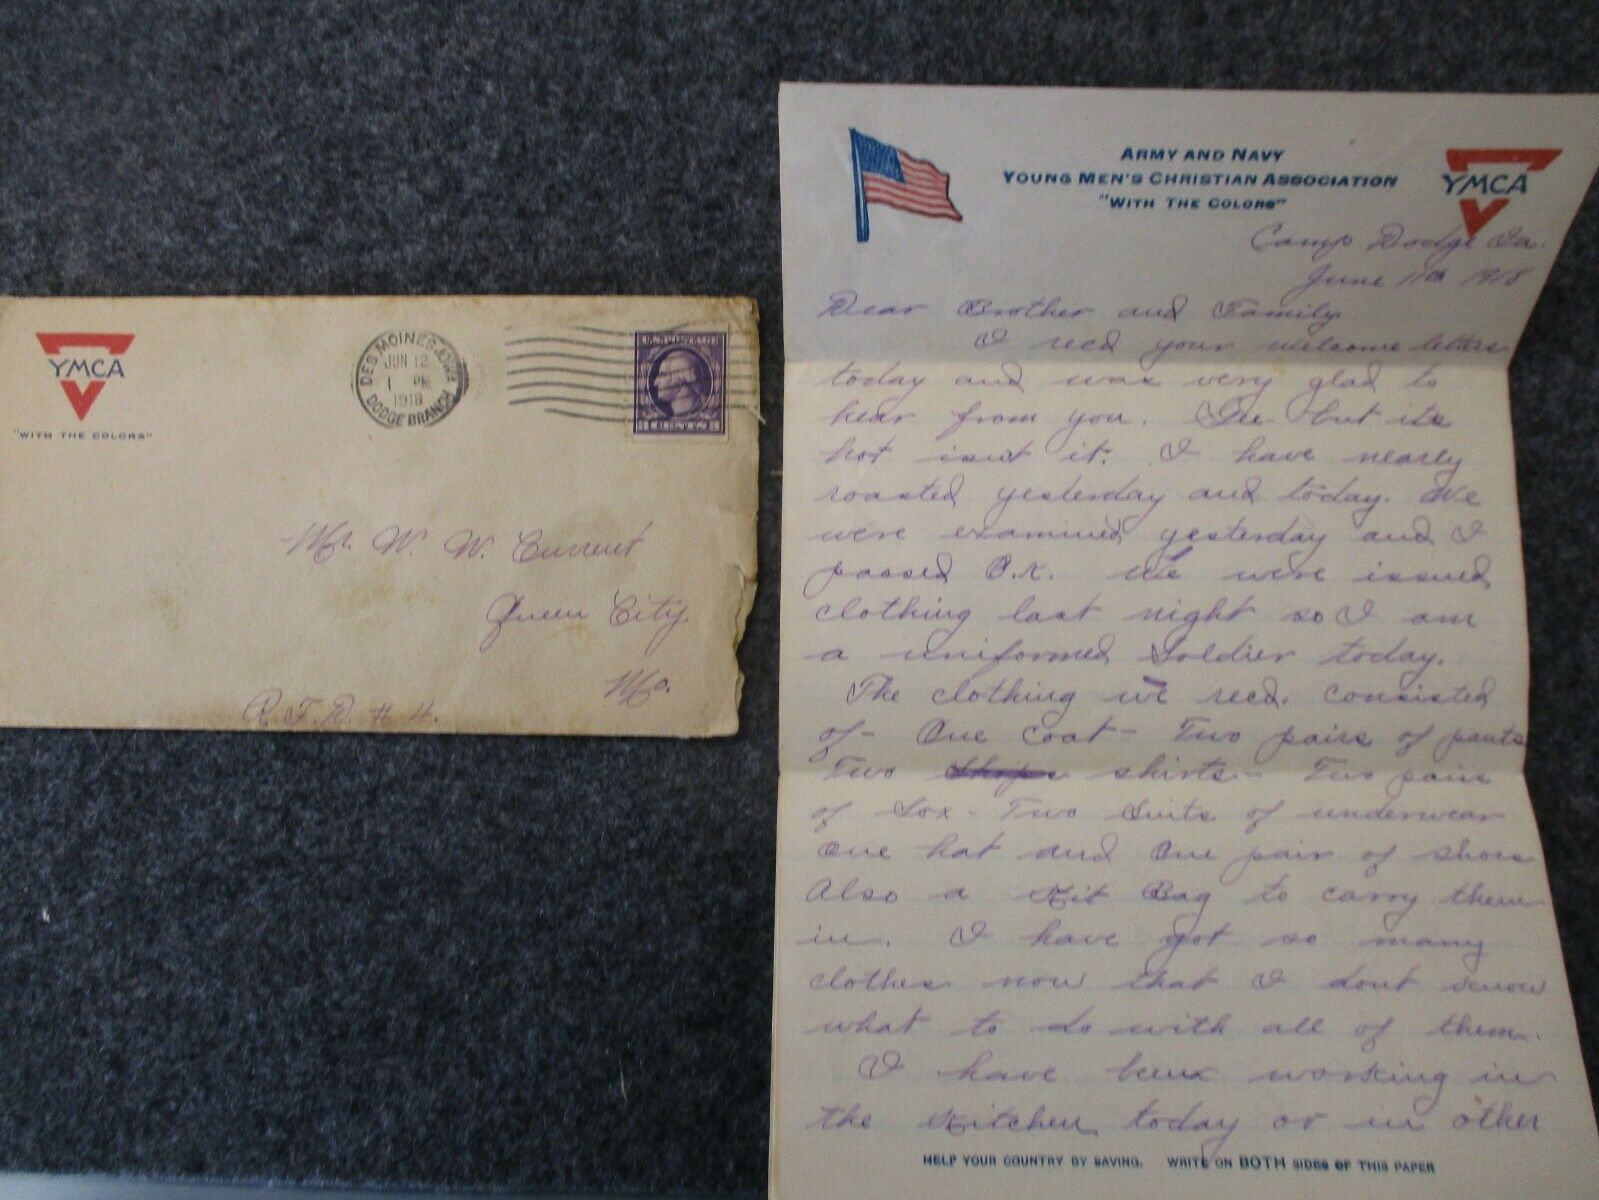 YMCA
"WITH THE COLORS"
DES MOINES, IOWA
JUN 12
1 PM
1918
DODGE BRANCH
Mr. W. W. Current
Queen City.
Mo.
R. F. D. # 4.
ARMY AND NAVY
YOUNG MEN'S CHRISTIAN ASSOCIATION
"WITH THE COLORS"
YMCA
Camp Dodge Ia.
June 11th 1918
Dear Brother and Family
I recd your welcome letters
today and was very glad to
hear from you. Gee but its
hot isnt it. I have nearly
roasted yesterday and today. We
were examined yesterday and I
passed O.K. We were issued
clothing last night so I am
a uniformed Soldier today.
The clothing we recd. consisted
of - One Coat - Two pairs of pants
Two shirts - Two pairs
of Sox - Two Suits of underwear
One hat and One pair of shoes
Also a Kit Bag to carry them
in. I have got so many
clothes now that I dont know
what to do with all of them.
I have been working in
the Kitchen today or in other
HELP YOUR COUNTRY BY SAVING. WRITE ON BOTH SIDES OF THIS PAPER